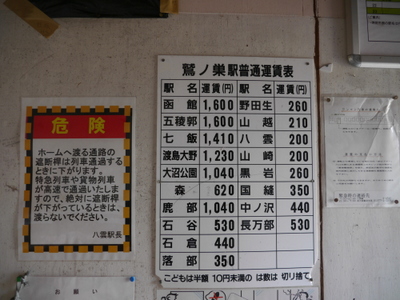 危険
ホームへ渡る通路の
遮断桿は列車通過する
ときに下がります。
特急列車や貨物列車
が高速で通過いたしま
すので、絶対に遮断桿
が下がっているときは、
渡らないでください。
八雲駅長
お願い
鷲ノ巣駅普通運賃表
駅名 運賃(円) 駅名 運賃(円)
函館 1,600 野田生 260
五稜郭 1,600 山越 210
七飯 1,410 八雲 200
渡島大野 1,230 山崎 200
大沼公園 1,040 黒岩 260
森 620 国縫 350
鹿部 1,040 中ノ沢 440
石谷 530 長万部 530
石倉 440
落部 350
こどもは半額 10円未満の は数は 切り捨て